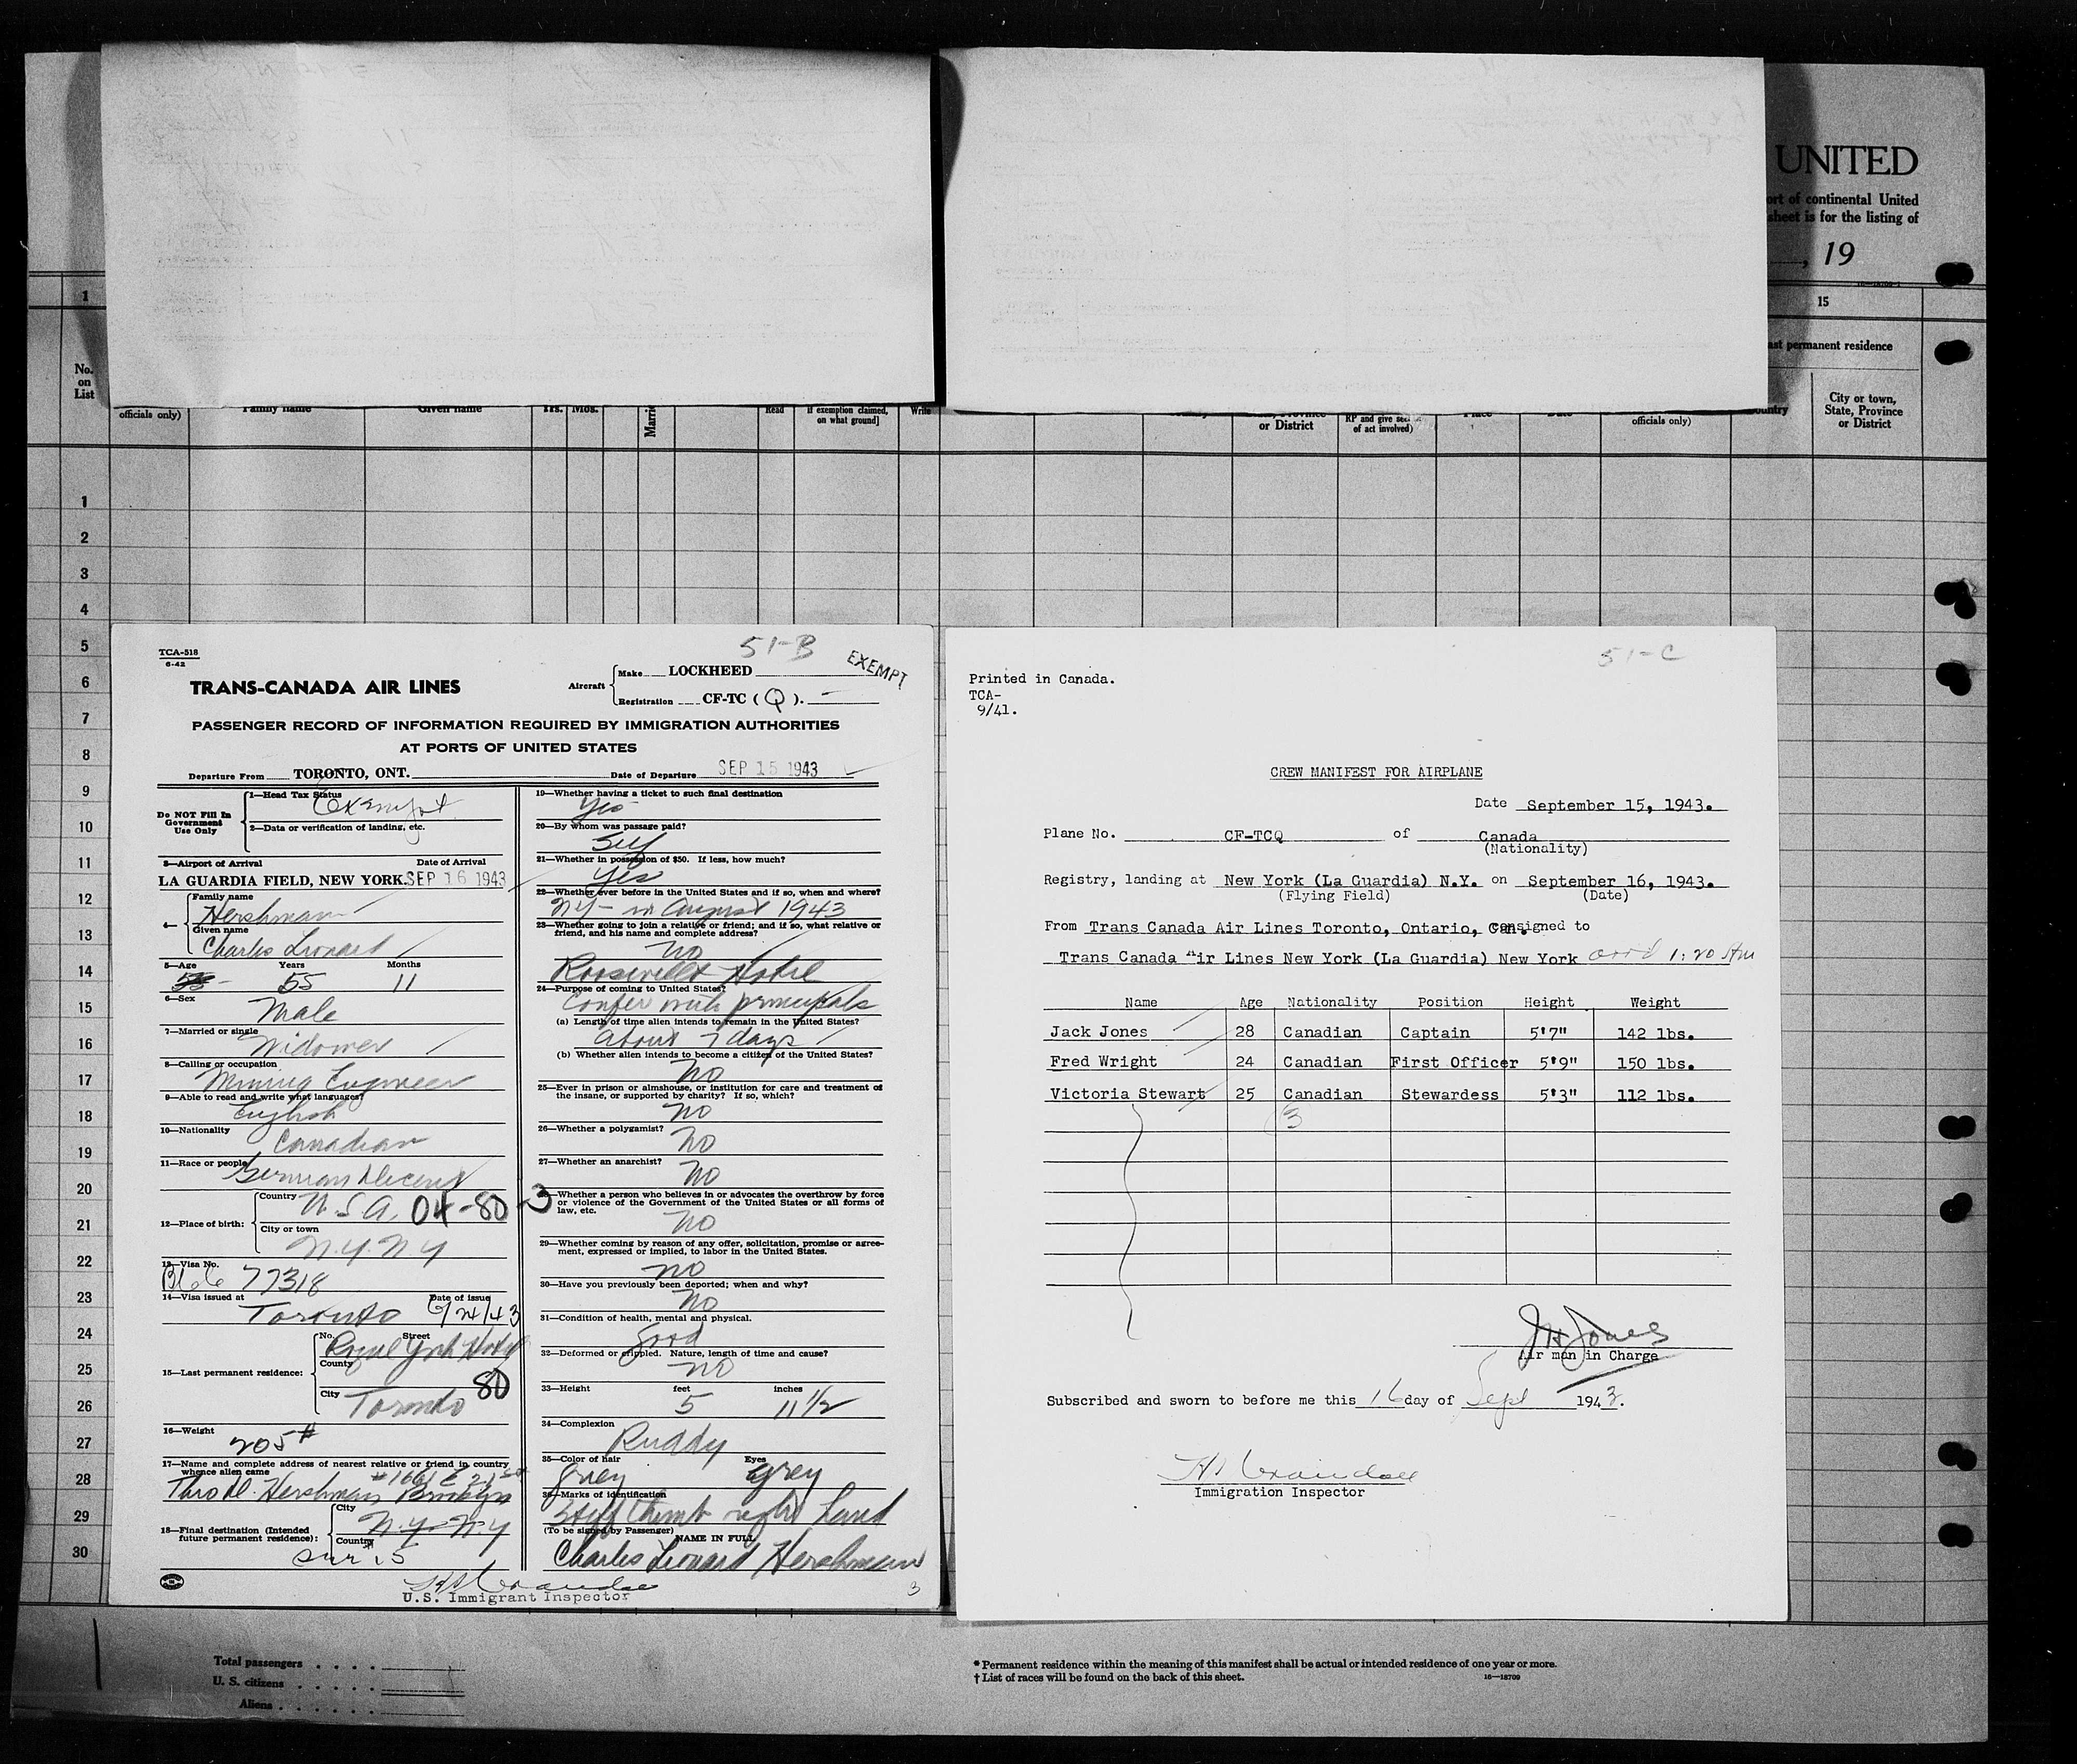 UNITED
ort of continental United
sheet is for the listing of
, 19
1
15
ast permanent residence
No.
on
List
officials only)
Family name
Given name
Yrs.
Mos.
Read
if exemption claimed,
on what ground]
Write
or District
RP and give sec
of act involved)
Place
Date
officials only)
ountry
City or town,
State, Province
or District
1
2
3
4
5
6
7
8
9
10
11
12
13
14
15
16
17
18
19
20
21
22
23
24
25
26
27
28
29
30
TCA-518
6-42
51-B
EXEMPT
TRANS-CANADA AIR LINES
Aircraft
Make LOCKHEED
Registration CF-TC (Q).
PASSENGER RECORD OF INFORMATION REQUIRED BY IMMIGRATION AUTHORITIES
AT PORTS OF UNITED STATES
Departure From TORONTO, ONT. Date of Departure SEP 15 1943
Do NOT Fill In
Government
Use Only
1—Head Tax Status
Exempt
2—Data or verification of landing, etc.
3—Airport of Arrival Date of Arrival
LA GUARDIA FIELD, NEW YORK. SEP 16 1943
4—
Family name
Hershman
Given name
Charles Leonard
5—Age Years Months
55 11
6—Sex
Male
7—Married or single
Widower
8—Calling or occupation
Mining Engineer
9—Able to read and write what languages?
English
10—Nationality
Canadian
11—Race or people
German Decent
12—Place of birth:
Country
U.S.A. 04-80-3
City or town
N.Y. N.Y
13—Visa No.
77318
14—Visa issued at Date of issue
Toronto 6/24/43
15—Last permanent residence:
No. Street
Royal York Hotel
County
City
Toronto 80
16—Weight
205#
17—Name and complete address of nearest relative or friend in country
whence alien came
#1661 E 21st
Hershman Brooklyn
18—Final destination (Intended
future permanent residence):
City
N.Y. N.Y
Country
U.S. Immigrant Inspector
19—Whether having a ticket to such final destination
Yes
20—By whom was passage paid?
Self
21—Whether in possession of $50. If less, how much?
Yes
22—Whether ever before in the United States and if so, when and where?
NY - in August 1943
23—Whether going to join a relative or friend; and if so, what relative or
friend, and his name and complete address?
No
Roosevelt Hotel
24—Purpose of coming to United States?
Confer with principals
(a) Length of time alien intends to remain in the United States?
About 7 days
(b) Whether alien intends to become a citizen of the United States?
No
25—Ever in prison or almshouse, or institution for care and treatment of
the insane, or supported by charity? If so, which?
No
26—Whether a polygamist?
No
27—Whether an anarchist?
No
28—Whether a person who believes in or advocates the overthrow by force
or violence of the Government of the United States or all forms of
law, etc.
No
29—Whether coming by reason of any offer, solicitation, promise or agree-
ment, expressed or implied, to labor in the United States.
No
30—Have you previously been deported; when and why?
No
31—Condition of health, mental and physical.
Good
32—Deformed or crippled. Nature, length of time and cause?
No
33—Height feet inches
5 11 1/2
34—Complexion
Ruddy
35—Color of hair Eyes
Grey Grey
36—Marks of identification
Stiff thumb right hand
(To be signed by Passenger)
NAME IN FULL
Charles Leonard Hershman
3
51-C
Printed in Canada.
TCA-
9/41.
CREW MANIFEST FOR AIRPLANE
Date September 15, 1943.
Plane No. CF-TCQ of Canada
(Nationality)
Registry, landing at New York (La Guardia) N.Y. on September 16, 1943.
(Flying Field) (Date)
From Trans Canada Air Lines Toronto, Ontario, Can. consigned to
Trans Canada Air Lines New York (La Guardia) New York arrd 1:20 AM
Name Age Nationality Position Height Weight
Jack Jones 28 Canadian Captain 5'7" 142 lbs.
Fred Wright 24 Canadian First Officer 5'9" 150 lbs.
Victoria Stewart 25 Canadian Stewardess 5'3" 112 lbs.
3
JH Jones
Air man in Charge
Subscribed and sworn to before me this 16 day of Sept 1943.
Immigration Inspector
Total passengers
U. S. citizens
Aliens
* Permanent residence within the meaning of this manifest shall be actual or intended residence of one year or more.
† List of races will be found on the back of this sheet.
16—18709